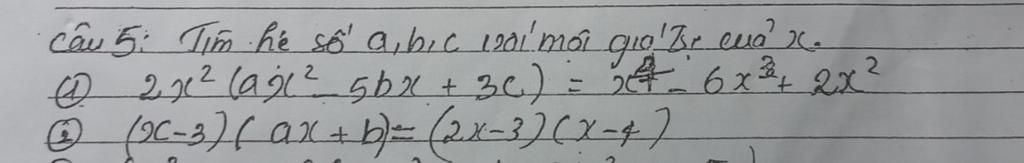 Câu 5: Tìm hệ số a, b, c với mỗi giá trị của x.
① 2x² (ax² - 5bx + 3c) = x⁴ - 6x³ + 2x²
② (x-3)(ax+b)=(2x-3)(x-4)